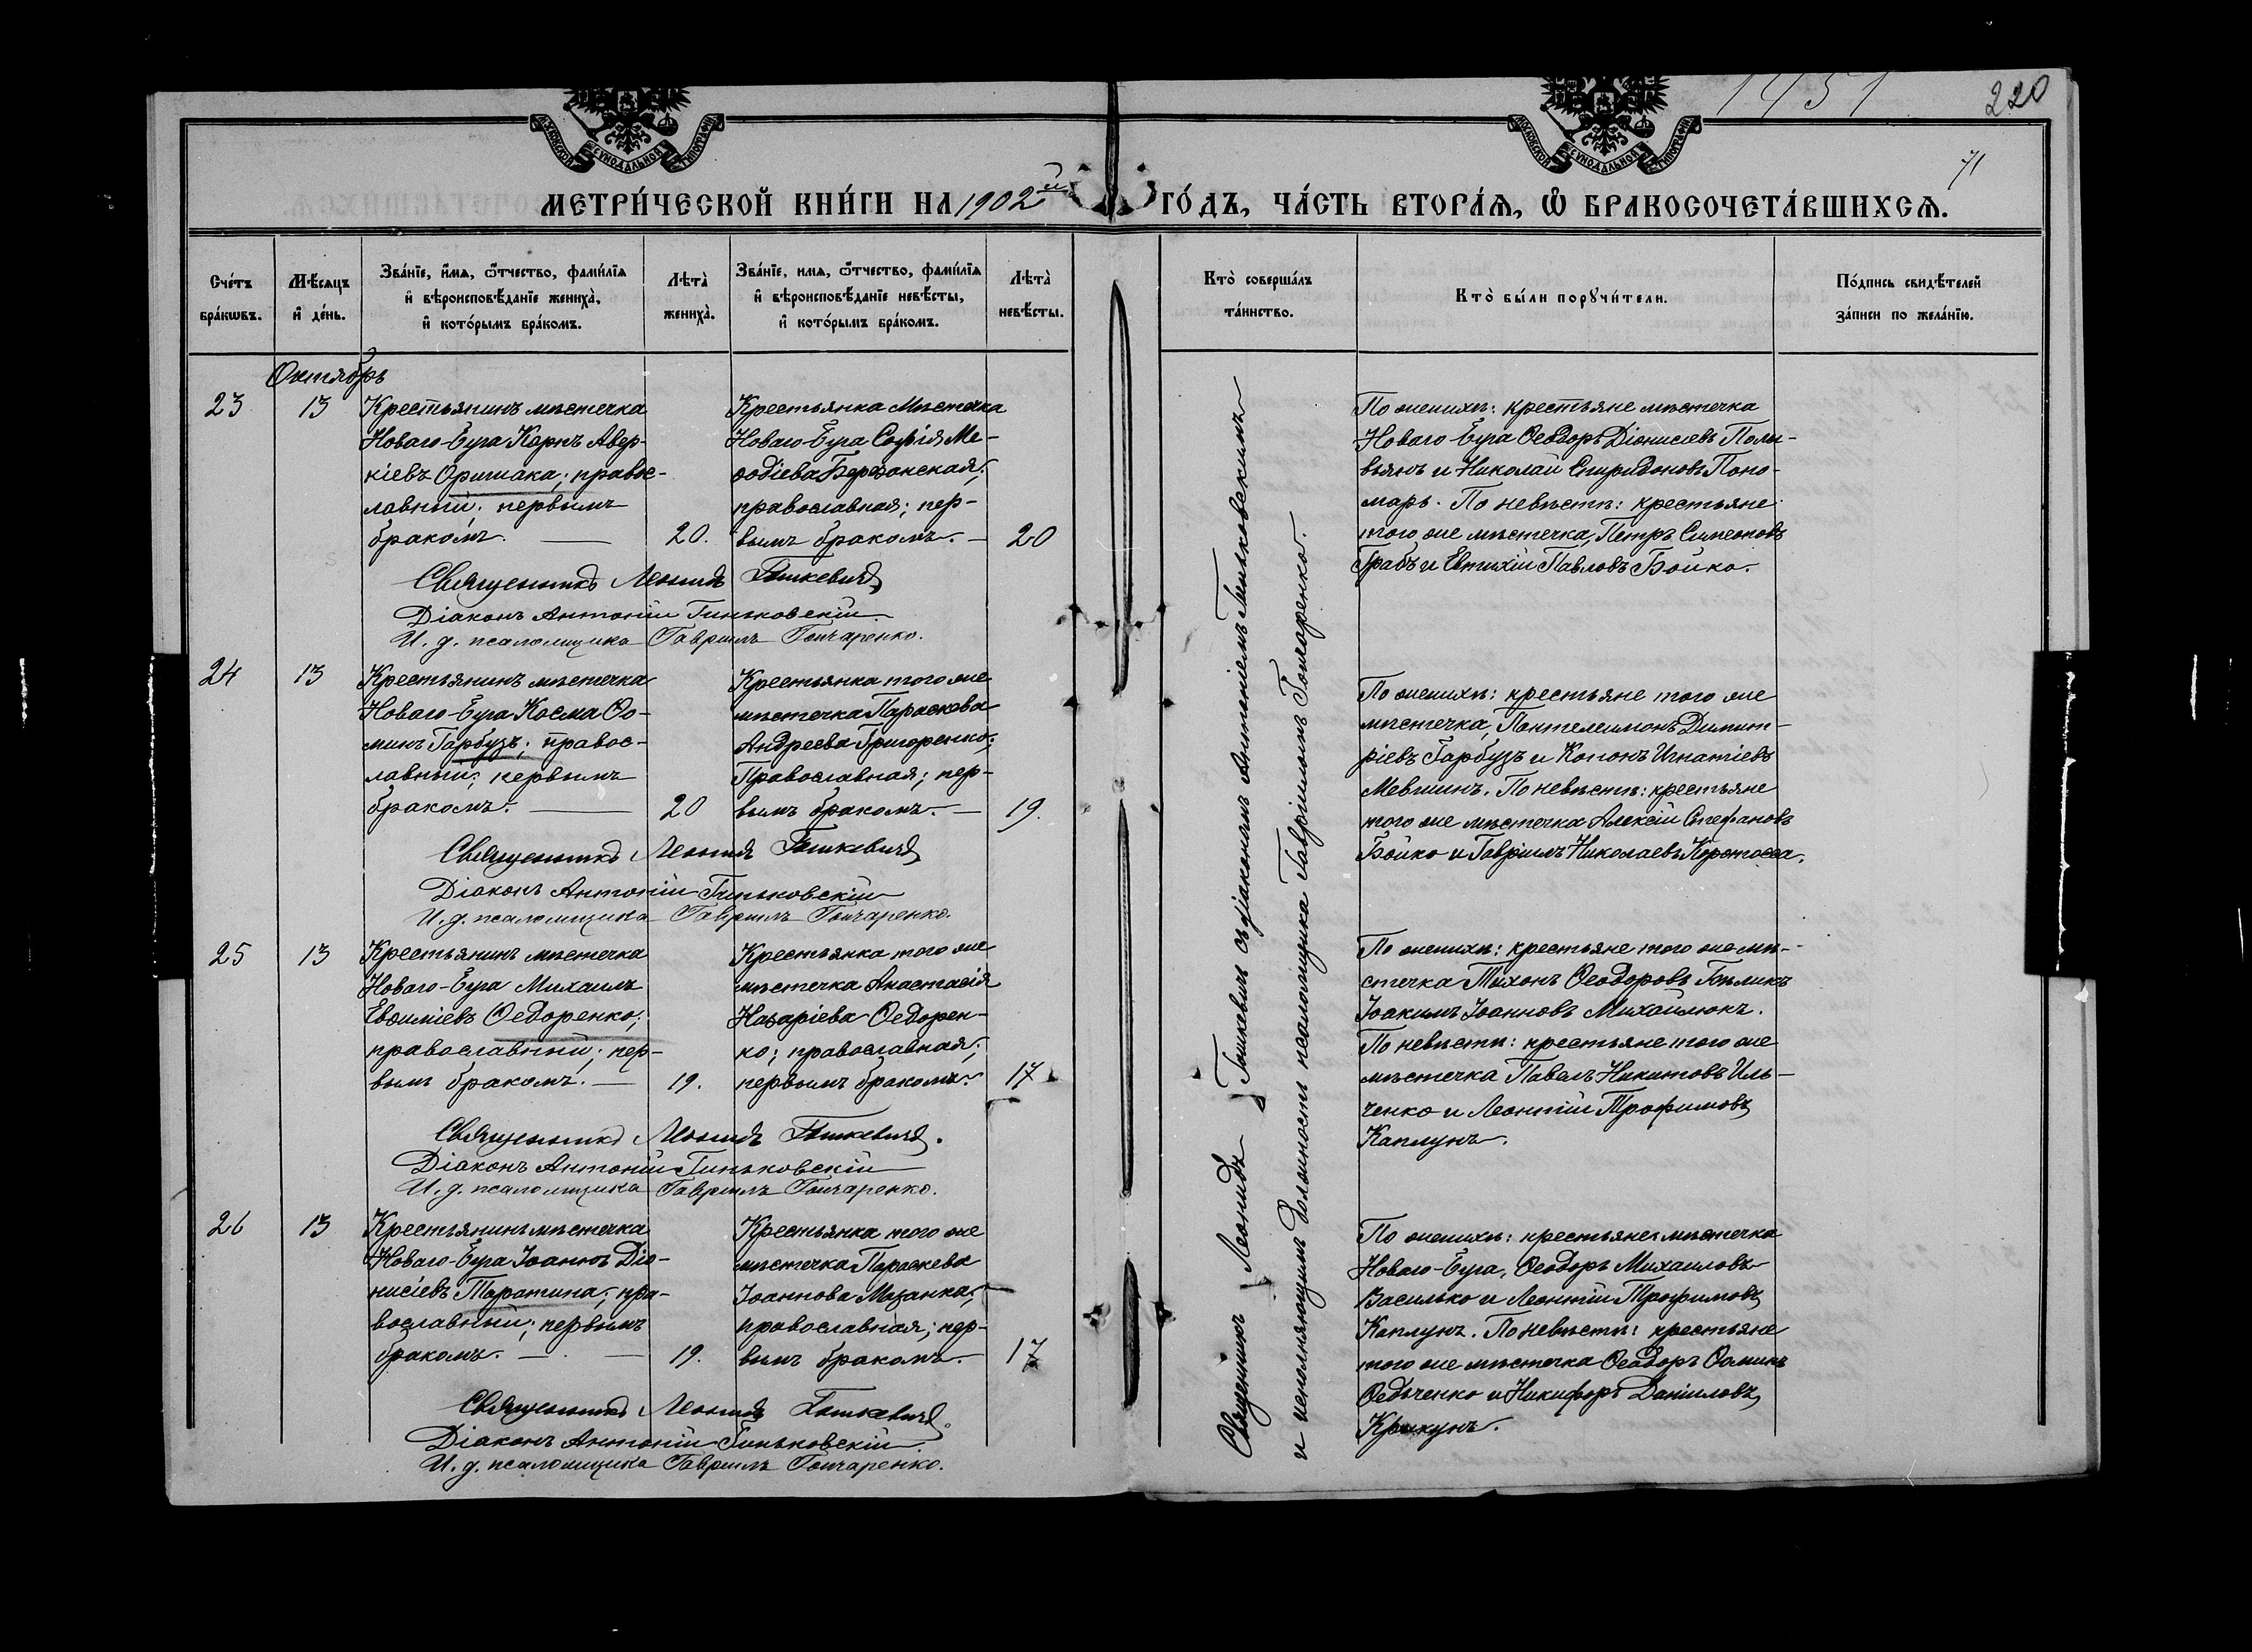 1451
220
71
МОСКОВСКОЙ СѴНОДАЛЬНОЙ ТИПОГРАФІИ
МОСКОВСКОЙ СѴНОДАЛЬНОЙ ТИПОГРАФІИ
МЕТРИ́ЧЕСКОЙ КНИ́ГИ НА 1902й ГО́ДЪ, ЧА́СТЬ ВТОРА́Я, Ѡ БРАКОСОЧЕТА́ВШИХСЯ.
Сче́тъ
бра́кѡвъ.
Мѣ́сяцъ
и҆ де́нь.
Зва́нїе, и҆́мя, ѻ҆́тчество, фами́лїя
и҆ вѣроисповѣ́данїе жениха̀,
и҆ кото́рымъ бра́комъ.
Лѣта̀
жениха̀.
Зва́нїе, имя, ѻ҆́тчество, фами́лїя
и҆ вѣроисповѣ́данїе невѣ́сты,
и҆ кото́рымъ бра́комъ.
Лѣта̀
невѣ́сты.
Кто̀ соверша́лъ
та́инство.
Кто̀ бы́ли порꙋчи́тели.
По́дпись свидѣ́телей
за́писи по жела́нїю.
Октябрь
23
13
Крестьянинъ мѣстечка
Новаго-Буга Карпъ Авер-
кіевъ Оришака; правос-
лавный; первымъ
бракомъ. —
20.
Крестьянка Мѣстечка
Новаго-Буга Софія Ме-
ѳодіева Бержанская;
православная; пер-
вымъ бракомъ. —
20
По женихѣ: крестьяне мѣстечка
Новаго Буга Ѳеодоръ Діонисіевъ Полы-
вянъ и Николай Спиридоновъ Поно-
марь. По невѣстѣ: крестьяне
того же мѣстечка, Петръ Симеоновъ
Грабъ и Евтихій Павловъ Бойко.
Священникъ Леонидъ Гошкевичъ
Діаконъ Антоній Гиньковскій
И. д. псаломщика Гавріилъ Гончаренко.
24
13
Крестьянинъ мѣстечка
Новаго-Буга Косма Ѳо-
минъ Гарбузъ; правос-
лавный; первымъ
бракомъ. —
20
Крестьянка того же
мѣстечка Параскева
Андреева Григоренко;
Православная; пер-
вымъ бракомъ. —
19.
По женихѣ: крестьяне того же
мѣстечка, Пантелеимонъ Димит-
ріевъ Гарбузъ и Кононъ Игнатіевъ
Мевшинъ. По невѣстѣ: крестьяне
того же мѣстечка Алексій Стефановъ
Бойко и Гавріилъ Николаевъ
Священникъ Леонидъ Гошкевичъ
Діаконъ Антоній Гиньковскій
И. д. псаломщика Гавріилъ Гончаренко.
25
13
Крестьянинъ мѣстечка
Новаго-Буга Михаилъ
Евѳиміевъ Ѳедоренко;
православный; пер-
вымъ бракомъ. —
19.
Крестьянка того же
мѣстечка Анастасія
Назаріева Ѳедорен-
ко; православная;
первымъ бракомъ.
17
По женихѣ: крестьяне того же мѣ-
стечка Тихонъ Ѳеодоровъ Бѣликъ
Іоакимъ Іоанновъ Михайлюкъ.
По невѣстѣ: крестьяне того же
мѣстечка Павелъ Никитовъ Иль-
ченко и Леонтій Трофимовъ
Каплунъ.
Священникъ Леонидъ Гошкевичъ.
Діаконъ Антоній Гиньковскій
И. д. псаломщика Гавріилъ Гончаренко.
26
13
Крестьянинъ мѣстечка
Новаго-Буга Іоаннъ Діо-
нисіевъ Таратина; пра-
вославный; первымъ
бракомъ. —
19.
Крестьянка того же
мѣстечка Параскева
Іоаннова Мазанка;
православная; пер-
вымъ бракомъ.
17
По женихѣ: крестьяне мѣстечка
Новаго-Буга, Ѳеодоръ Михаиловъ
Василько и Леонтій Трофимовъ
Каплунъ. По невѣстѣ: крестьяне
того же мѣстечка Ѳеодоръ Ѳоминъ
Ѳедьченко и Никифоръ Даніиловъ
Крикунъ.
Священникъ Леонидъ Гошкевичъ.
Діаконъ Антоній Гиньковскій.
И. д. псаломщика Гавріилъ Гончаренко.
Священникъ Леонидъ Гошкевичъ съ діакономъ Антоніемъ Гиньковскимъ
и исполняющимъ должность псаломщика Гавріиломъ Гончаренко.